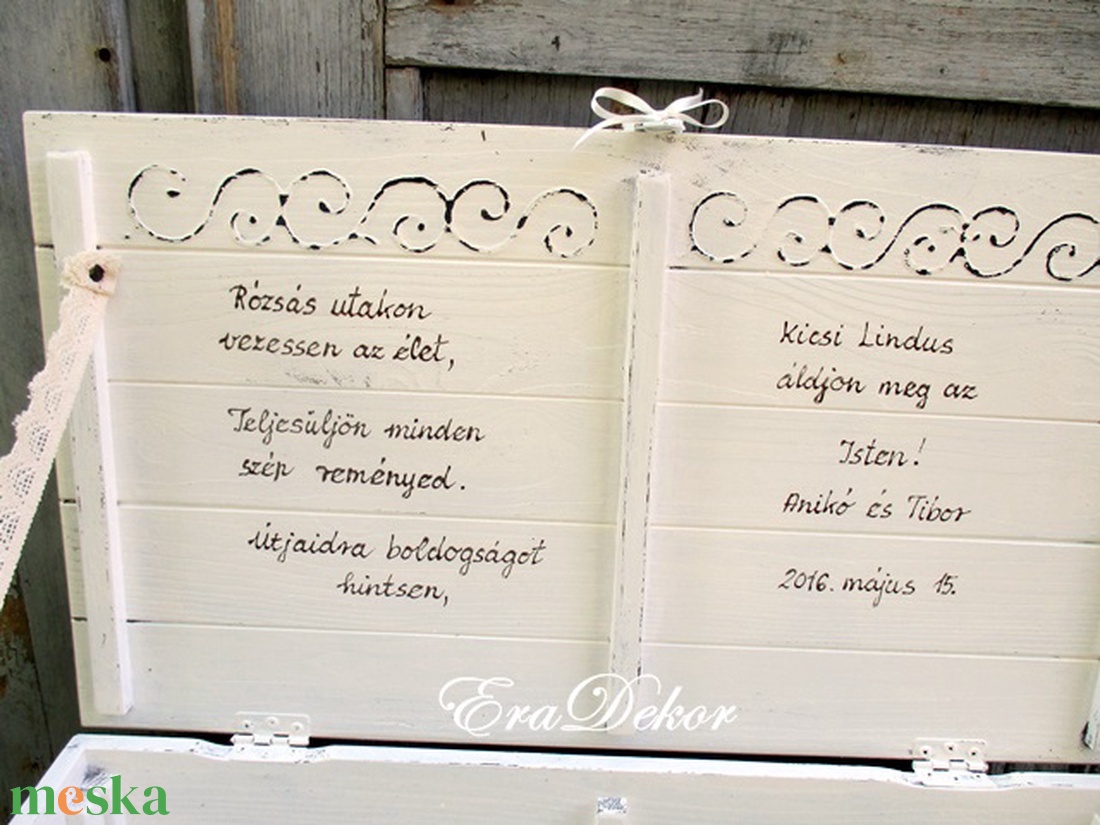 Rózsás utakon
vezessen az élet,
Teljesüljön minden
szép reményed.
Útjaidra boldogságot
hintsen,
Kicsi Lindus
áldjon meg az
Isten!
Anikó és Tibor
2016. május 15.
EraDekor
meska